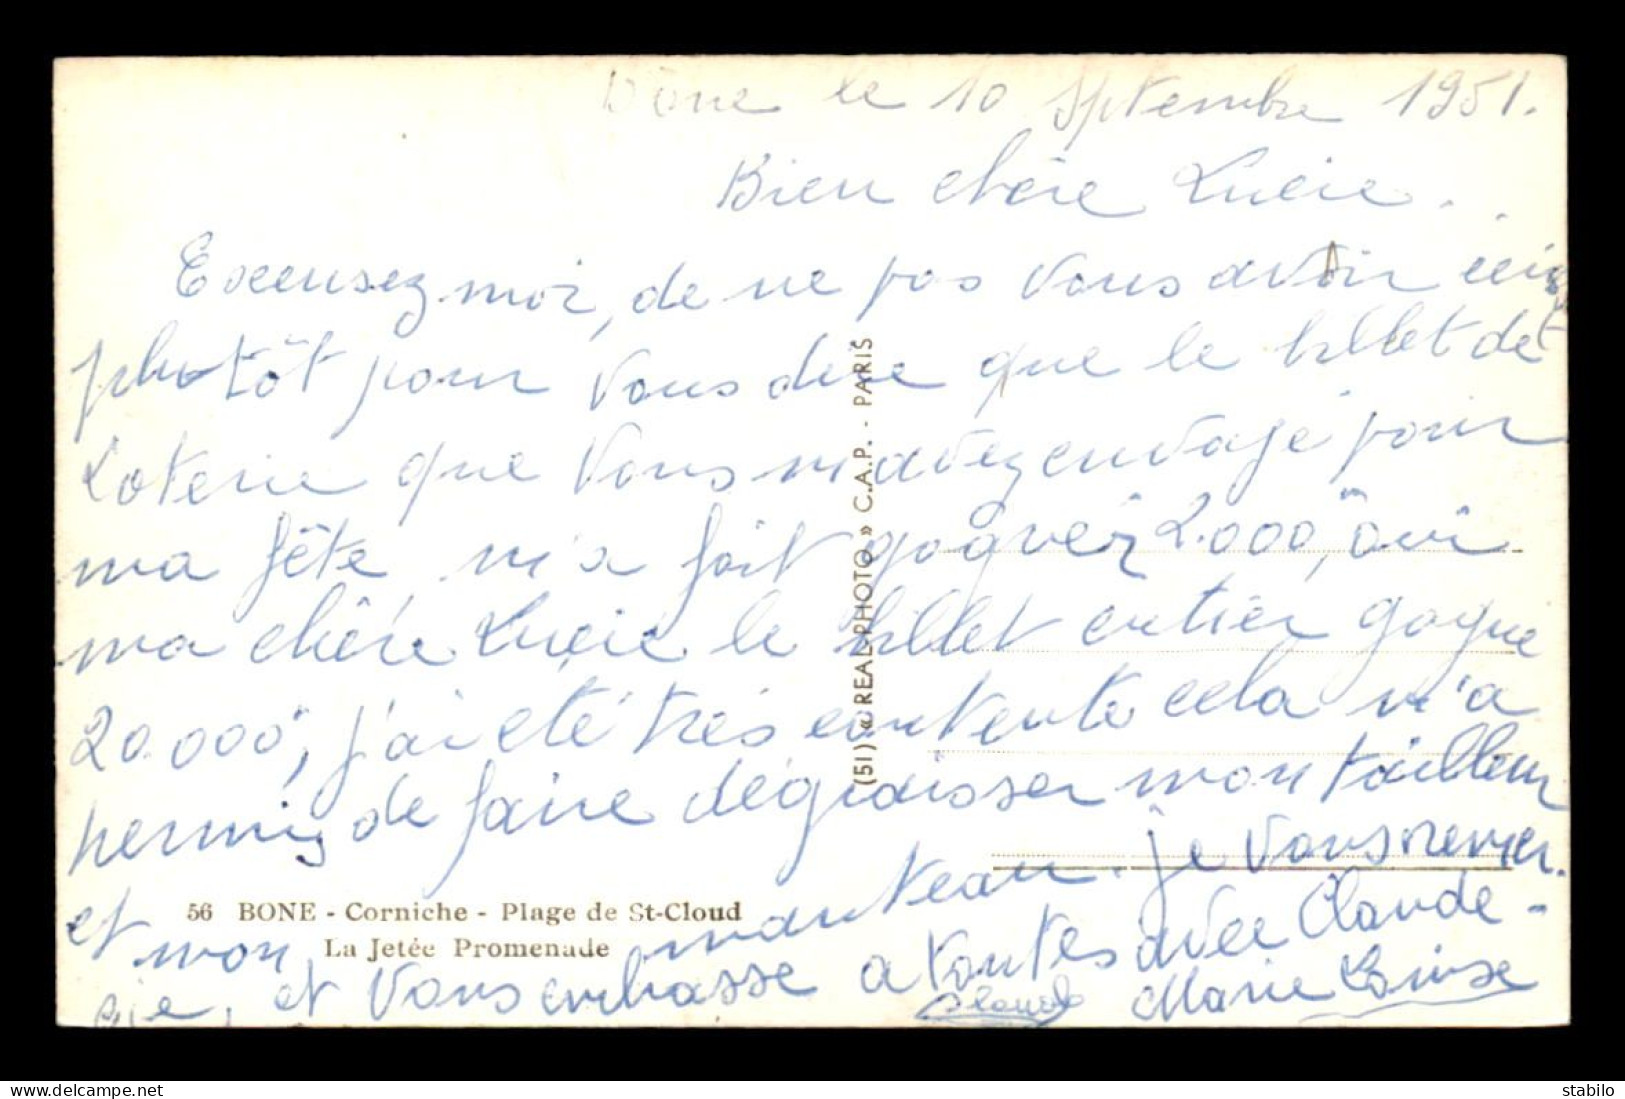 Bône le 10 Septembre 1951.
Bien chère Lucie.
Excusez moi, de ne pas vous avoir
plutôt pour vous dire que le billet de
Loterie que vous m'avez envoyé pour
ma fête m'a fait gagner 2.000, oui
ma chère Lucie le billet entier gagne
20.000, j'ai été très contente cela m'a
permis de faire dégraisser mon tailleur
et mon manteau. je vous remer-
cie, et vous embrasse a toutes avec Claude
Claude Marie Louise
56 BONE - Corniche - Plage de St-Cloud
La Jetée Promenade
(51) « REAL-PHOTO » C.A.P. - PARIS
https://www.delcampe.net
stabilo